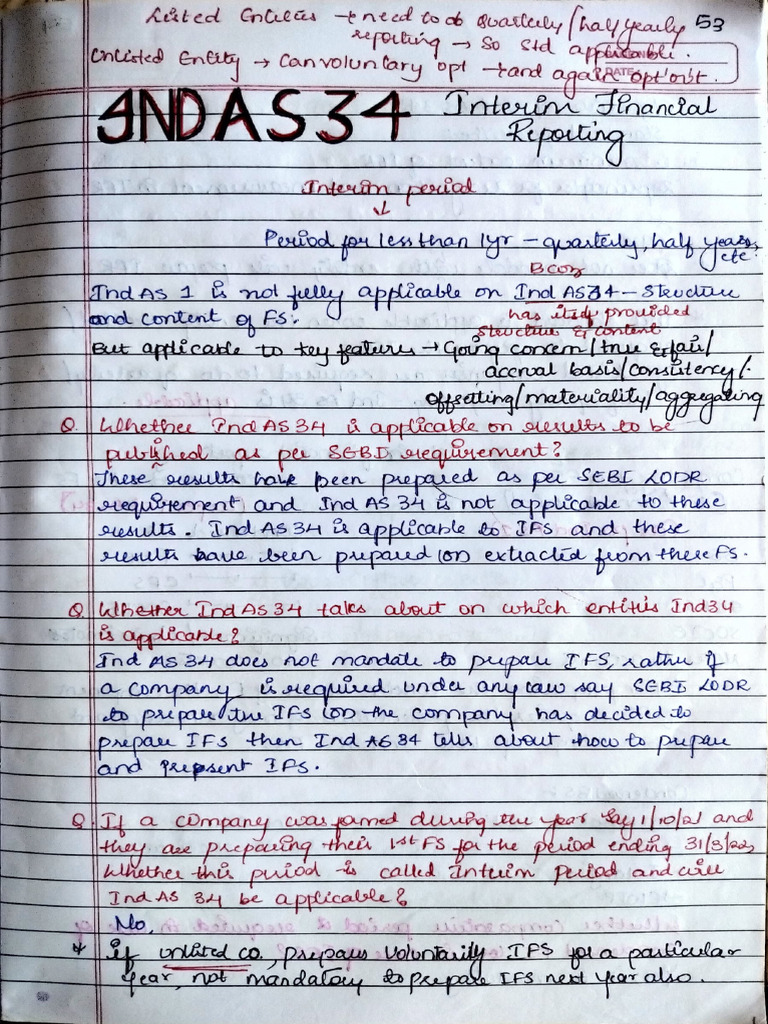 Listed Entities → need to do Quarterly/half yearly 53
reporting → So std applicable.
Unlisted Entity → Can voluntary opt → and again opt out.
DATE
IND AS 34 Interim Financial
Reporting
Interim period
↓
Period for less than 1yr – quarterly, half years,
etc.
Bcoz
Ind AS 1 is not fully applicable on Ind AS 34 – Structure
and content of FS. has itself provided
structure & content
But applicable to key features → Going concern/true & fair/
accrual basis/consistency/.
offsetting/materiality/aggregating
Q. Whether Ind AS 34 is applicable on results to be
published as per SEBI requirement?
These results have been prepared as per SEBI LODR
requirement and Ind AS 34 is not applicable to these
results. Ind AS 34 is applicable to IFS and these
results have been prepared (or) extracted from these FS.
Q. Whether Ind AS 34 talks about on which entities Ind 34
is applicable?
Ind AS 34 does not mandate to prepare IFS, rather if
a company is required under any law say SEBI LODR
to prepare the IFS (or) the company has decided to
prepare IFS then Ind AS 34 tells about how to prepare
and prepsent IFS.
Q. If a company was formed during the year say 1/10/21 and
they are preparing their 1st FS for the period ending 31/3/22,
Whether this period is called Interim Period and will
Ind AS 34 be applicable?
No,
* if unlisted co., prepares voluntarily IFS for a particular
year, not mandatory to prepare IFS next year also.